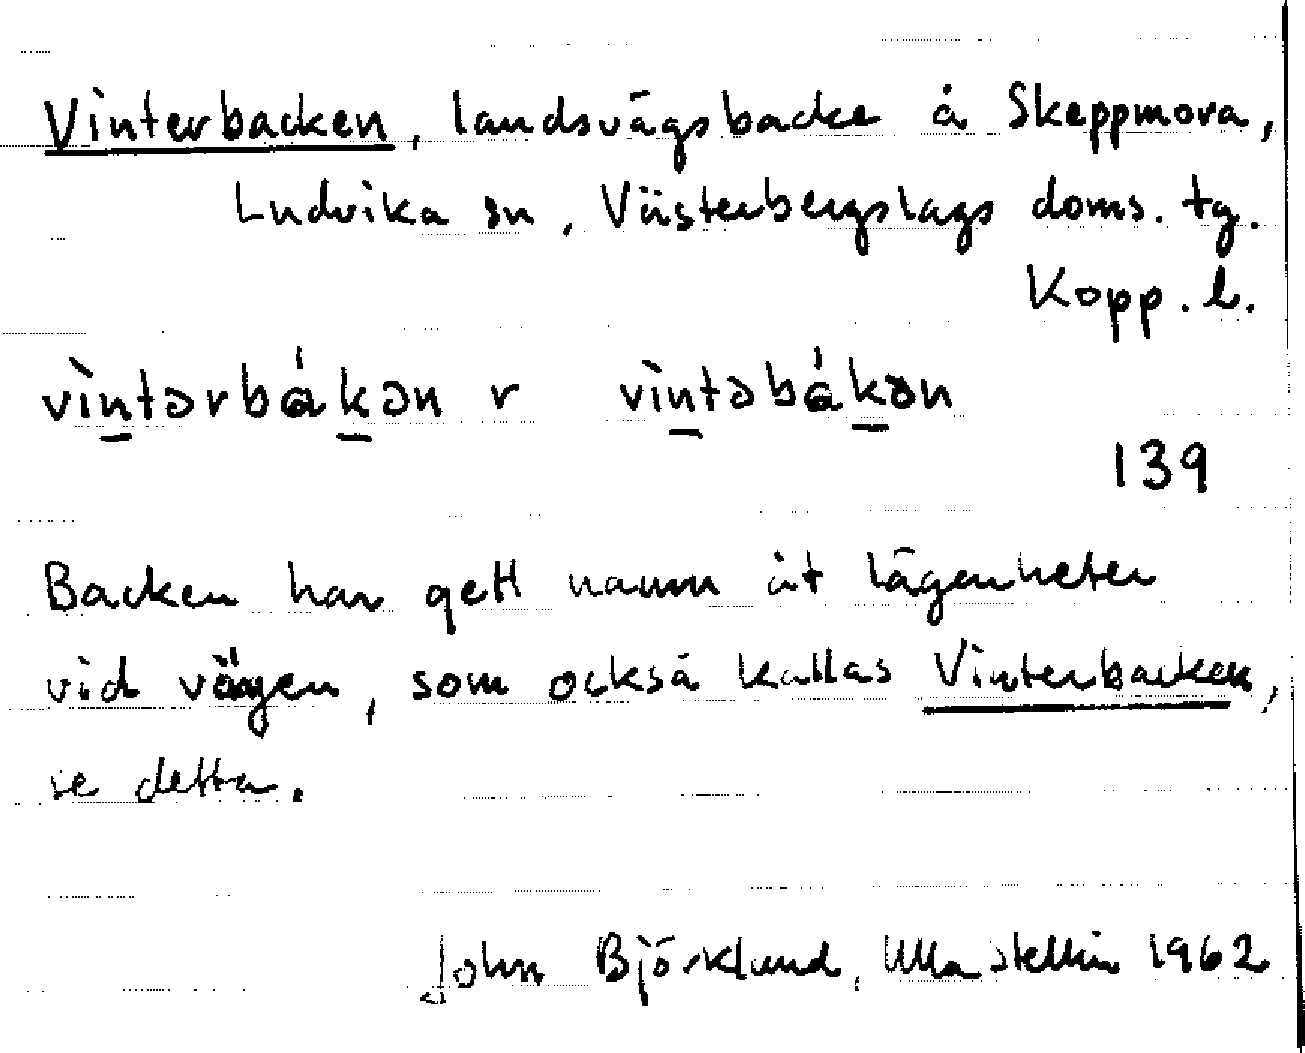 Vinterbacken, landsvägsbacke å Skeppmora,
Ludvika sn, Västerbergslags doms. tg.
Kopp. l.
vìn̲tərbák̲ən r vìn̲təbák̲ən
139
Backen har gett namn åt lägenheter
vid vägen, som också kallas Vinterbacken,
se detta.
John Björklund, Ulla Stellin 1962